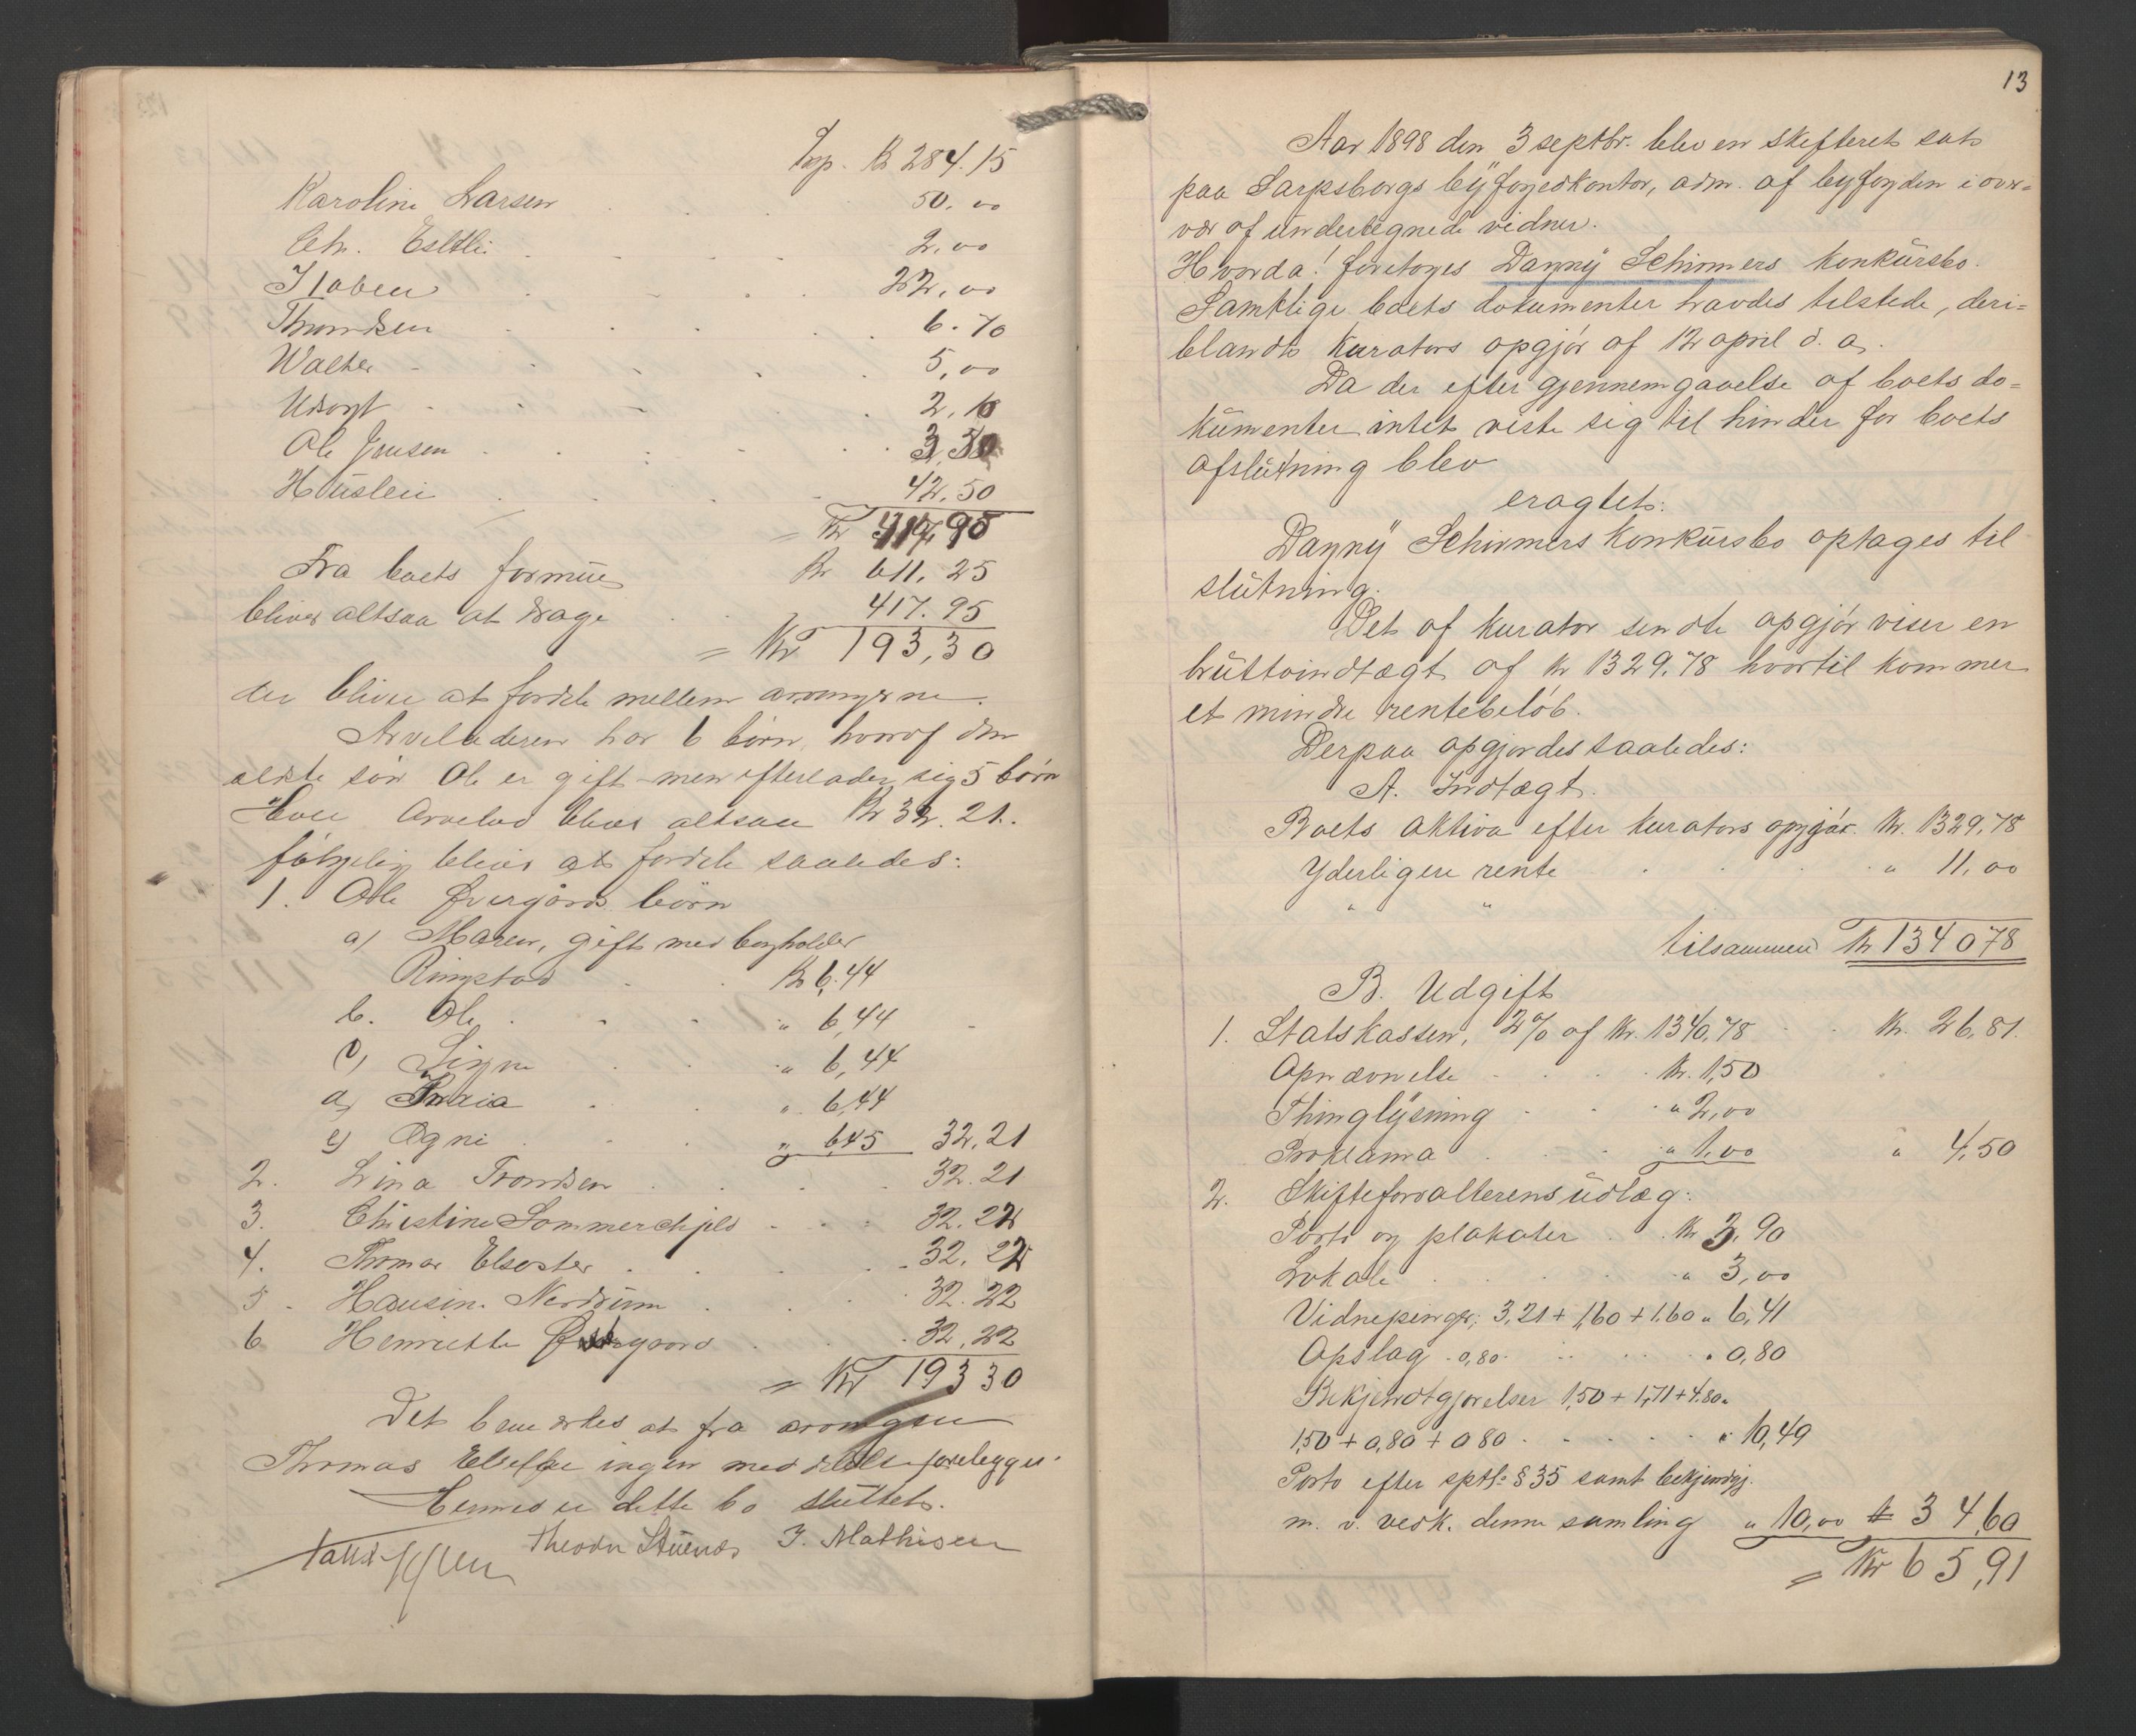 Trp. Kr 284.15
Karoline Larsen . . . 50.00
Chr. . . . 2,00
. . . 22,00
Thomsen . . . 6.70
Walter . . . 5,00
Udvogt . . . 2,10
Ole Jensen . . . 3,50
Husleie . . . 42.50
= Kr 417,95
Fra boets formue Kr 611,25
bliver altsaa at drage . . 417.95
= Kr 193,30
der bliver at fordele mellem arvingerne.
Arveladeren har 6 börn, hvoraf den
ældste sön Ole er gift men efterlader sig 5 börn
Hver Arvelod bliver altsaa Kr 32.21.
fölgelig bliver at fordele saaledes:
1. Ole börn
a) Maren, gift med
Ringstad . . Kr 6,44
b. Ole . . . " 6,44
c) Signe . . . " 6,44
d) . . . " 6,44
e) Ogni . . . " 6,45 32,21
2. Lina Trondsen . . . 32.21
3. Christine Sommerchjeld . . . 32.22
4. Thomas . . . 32,22
5. Nordrum . . . 32.22
6 Henriette . . . 32,22
= Kr 193 30
Det bemærkes at fra arvingen
Thomas ingen meddelelse forelegger.
Hermed er dette bo sluttet.
Theodor J. Mathisen
13
Aar 1898 den 3 septbr. blev en skifteret sat
paa Sarpsborgs byfogedkontor, adm. af byfogden i over=
vær af undertegnede vidner.
Hvorda! foretoges Dagny Schirmers konkursbo.
Samtlige boets dokumenter havdes tilstede, deri=
blandt kurators opgjör af 12 april d. a.
Da der efter gjennemgaaelse af boets do=
kumenter intet viste sig til hinder for boets
afslutning blev
eragtet:
Dagny Schirmers konkursbo optages til
slutning.
Det af kurator sendte opgjör viser en
bruttoindtægt af kr 1329.78 hvortil kommer
et mindre rentebelöb.
Derpaa opgjordes saaledes:
A. Indtægt.
Boets aktiva efter kurators opgjör. Kr. 1329,78
Yderligere rente . . . " 11,00
" "
tilsammen Kr 1340 78
B. Udgift
1. Statskassen, 2% af Kr. 1340,78 . . Kr. 26,81.
Opnævnelse . . . . Kr. 1,50
Thinglysning . . . " 2,00
Proklama . . . " 1,00 " 4,50
2. Skifteforvalterens udlæg:
Porto og plakater . . Kr 3,90
Lokale . . . " 3,00
Vidnepenge; 3,21 + 1,60 + 1.60 " 6,41
Opslag . 0,80 . . . " 0,80
Bekjendtgjörelser 1,50 + 1,71 + 4.80 "
1,50 + 0,80 + 0 80 . . . . . " 10,49
Porto efter sptl. § 35 samt bekjendtgj.
m. v. vedk. denne samling " 10,00 " 3 4,60
= Kr 6 5,91